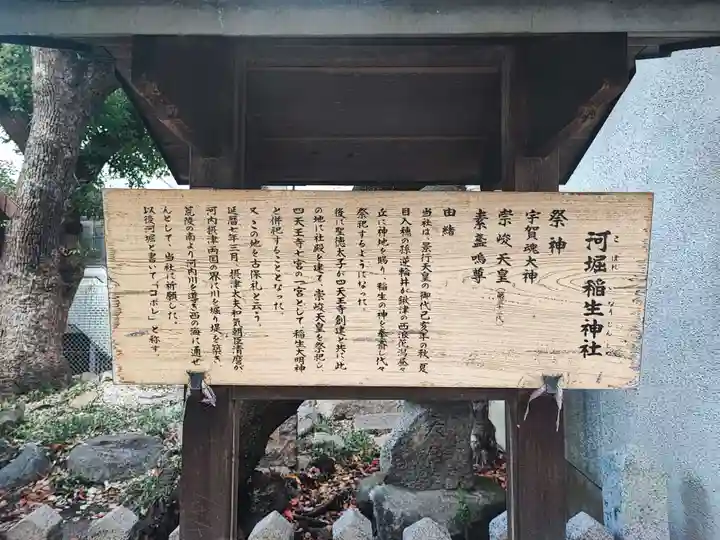 河堀稲生神社
こぼれ なりじんじゃ
祭神
宇賀魂大神
崇峻天皇
素盞嗚尊
由緒
当社は、景行天皇の御代己亥年の秋、夏
目入穂の
丘に神地を賜り、稲生の神を奉斎し代々
祭祀するようになった。
後に聖徳太子が四天王寺創建と共に此
の地に社殿を建て、崇峻天皇を祭祀し、
四天王寺七宮の一宮として稲生大明神
と併祀することとなった。
又、この地を古保礼と云う。
延暦七年三月、摂津大夫和気朝臣清麿が
河内摂津両国の界に川を堀り堤を築き、
荒陵の南より河内川を導き西の海に通ぜ
んとして、当社に祈願した。
以後河堀と書いて「コボレ」と称す。